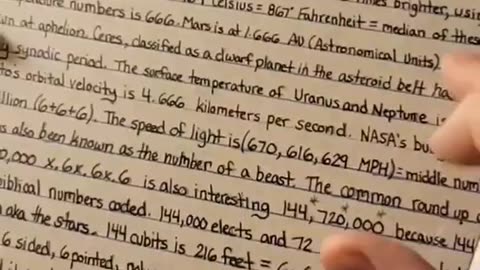 brighter, using
perature numbers is 666. Mars is at 1.666 AU (Astronomical Units)
Celsius = 867° Fahrenheit = median of these
un at aphelion. Ceres, classified as a dwarf planet in the asteroid belt ha
synodic period. The surface temperature of Uranus and Neptune i
tos orbital velocity is 4.666 kilometers per second. NASA's bu
llion (6+6+6). The speed of light is (670, 616, 629 MPH) = middle num
s also been known as the number of a beast. The common round up
0,000 x .6 x .6 x .6 is also interesting 144,720,000 because 144
biblical numbers coded. 144,000 elects and 72
aka the stars. 144 cubits is 216 feet =
6 sided, 6 pointed,